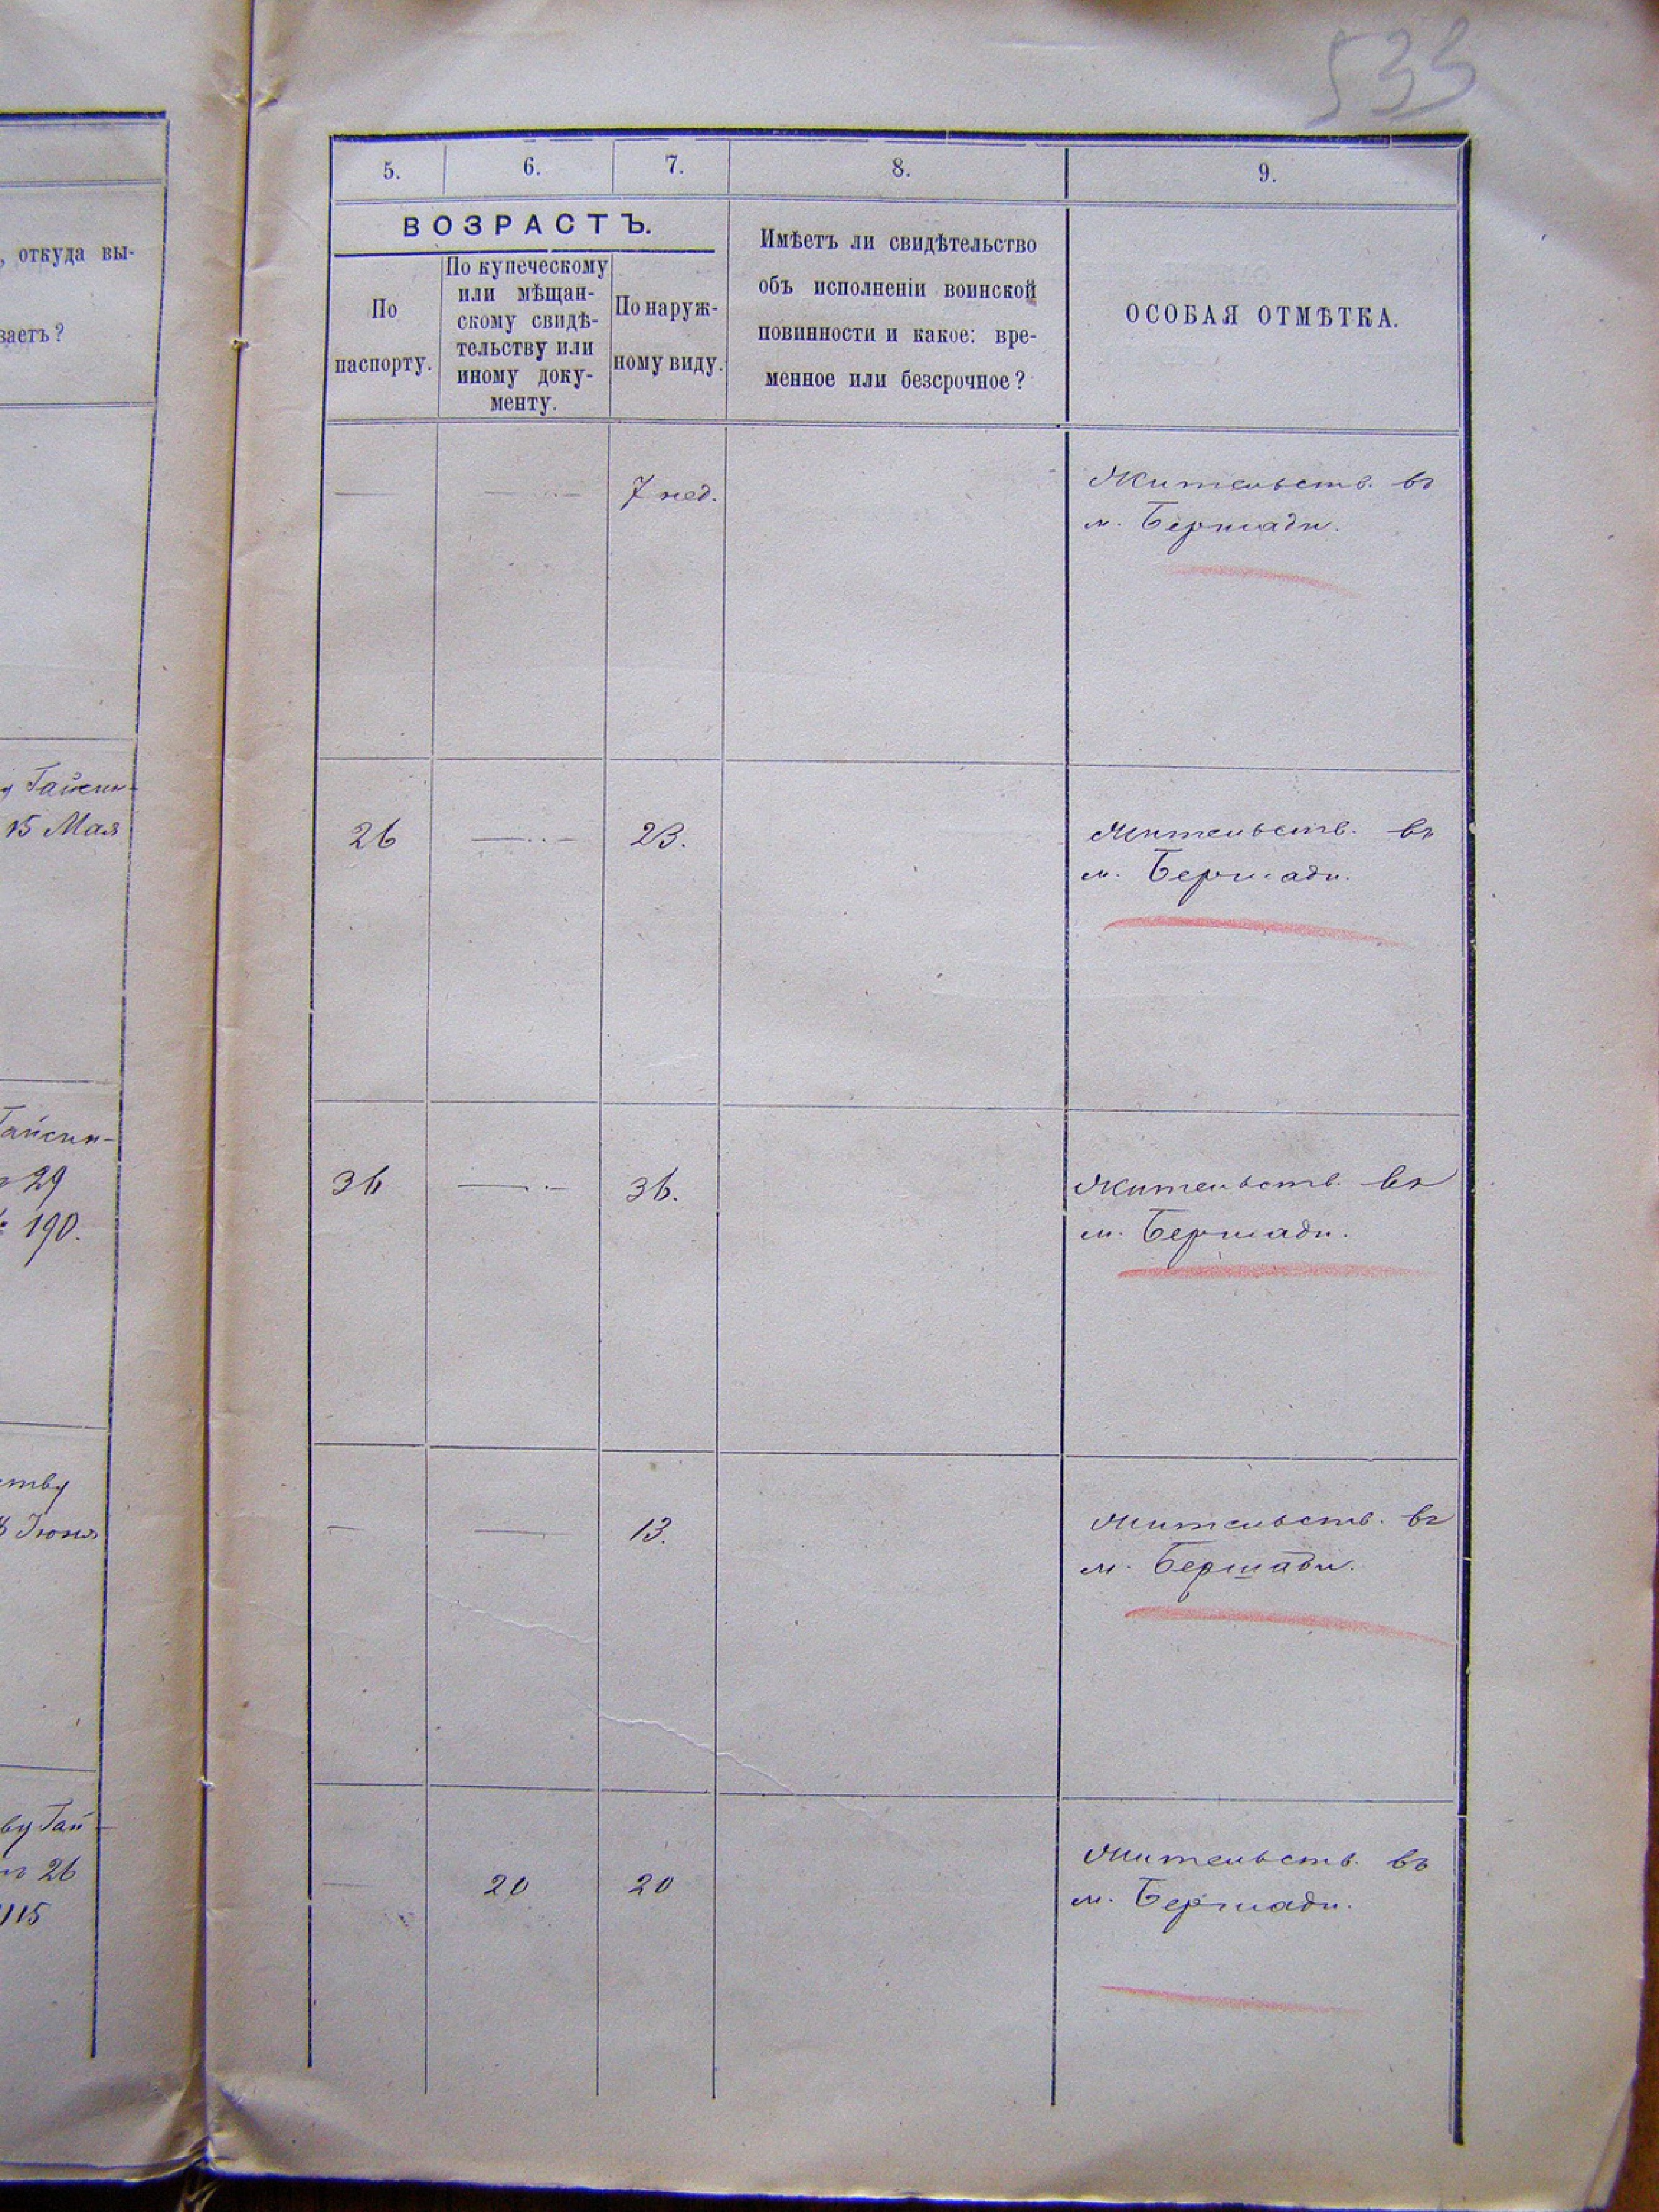 533
, откуда вы-
ваетъ?
у Гайсин-
15 Мая
Гайсин-
29
№ 190.
ству
Іюня
ву Гай-
26
115
5. 6. 7. 8. 9.
ВОЗРАСТЪ.
По
паспорту.
По купеческому
или мѣщан-
скому свидѣ-
тельству или
иному доку-
менту.
По наруж-
ному виду.
Имѣетъ ли свидѣтельство
объ исполненіи воинской
повинности и какое: вре-
менное или безсрочное?
ОСОБАЯ ОТМѢТКА.
— — 7 нед.
Жительств. въ
м. Бершади.
26 — 23.
Жительств. въ
м. Бершади.
36 — 36.
Жительств. въ
м. Бершади.
— — 13.
Жительств. въ
м. Бершади.
— 20 20
Жительств. въ
м. Бершади.